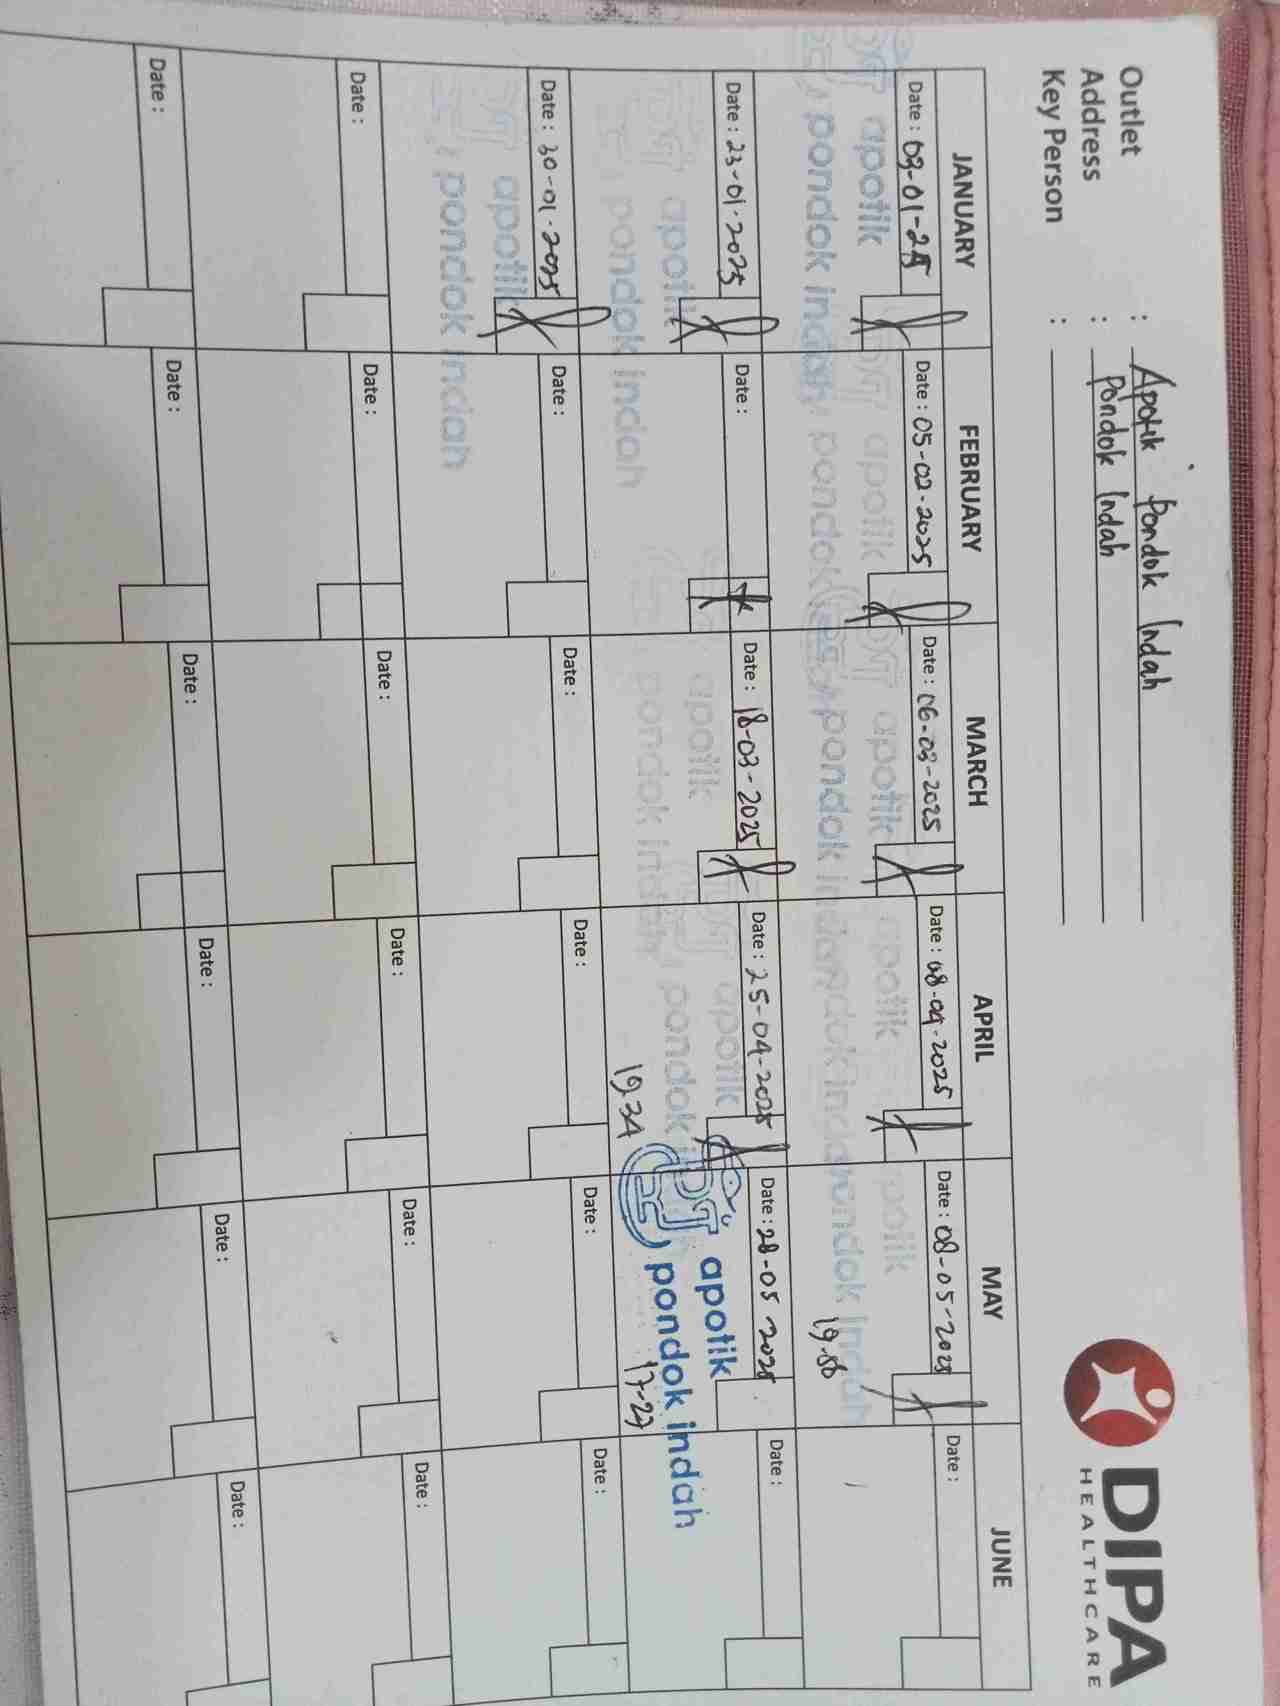 DIPA
HEALTHCARE
Outlet : Apotik Pondok Indah
Address : Pondok Indah
Key Person :
JANUARY FEBRUARY MARCH APRIL MAY JUNE
Date : 09-01-25 Date : 05-02-2025 Date : 06-03-2025 Date : 08-04-2025 Date : 08-05-2025 Date :
apotik apotik apotik apotik
pondok indah pondok pondok indah pondok indah
19.56
Date : 23-01-2025 Date : Date : 18-03-2025 Date : 25-04-2025 Date : 28-05 2025 Date :
apotik apotik apotik apotik
pondok indah pondok indah pondok pondok indah
19.34 17-27
Date : 30-01-2025 Date : Date : Date : Date : Date :
apotik
pondok indah
Date : Date : Date : Date : Date : Date :
Date : Date : Date : Date : Date : Date :